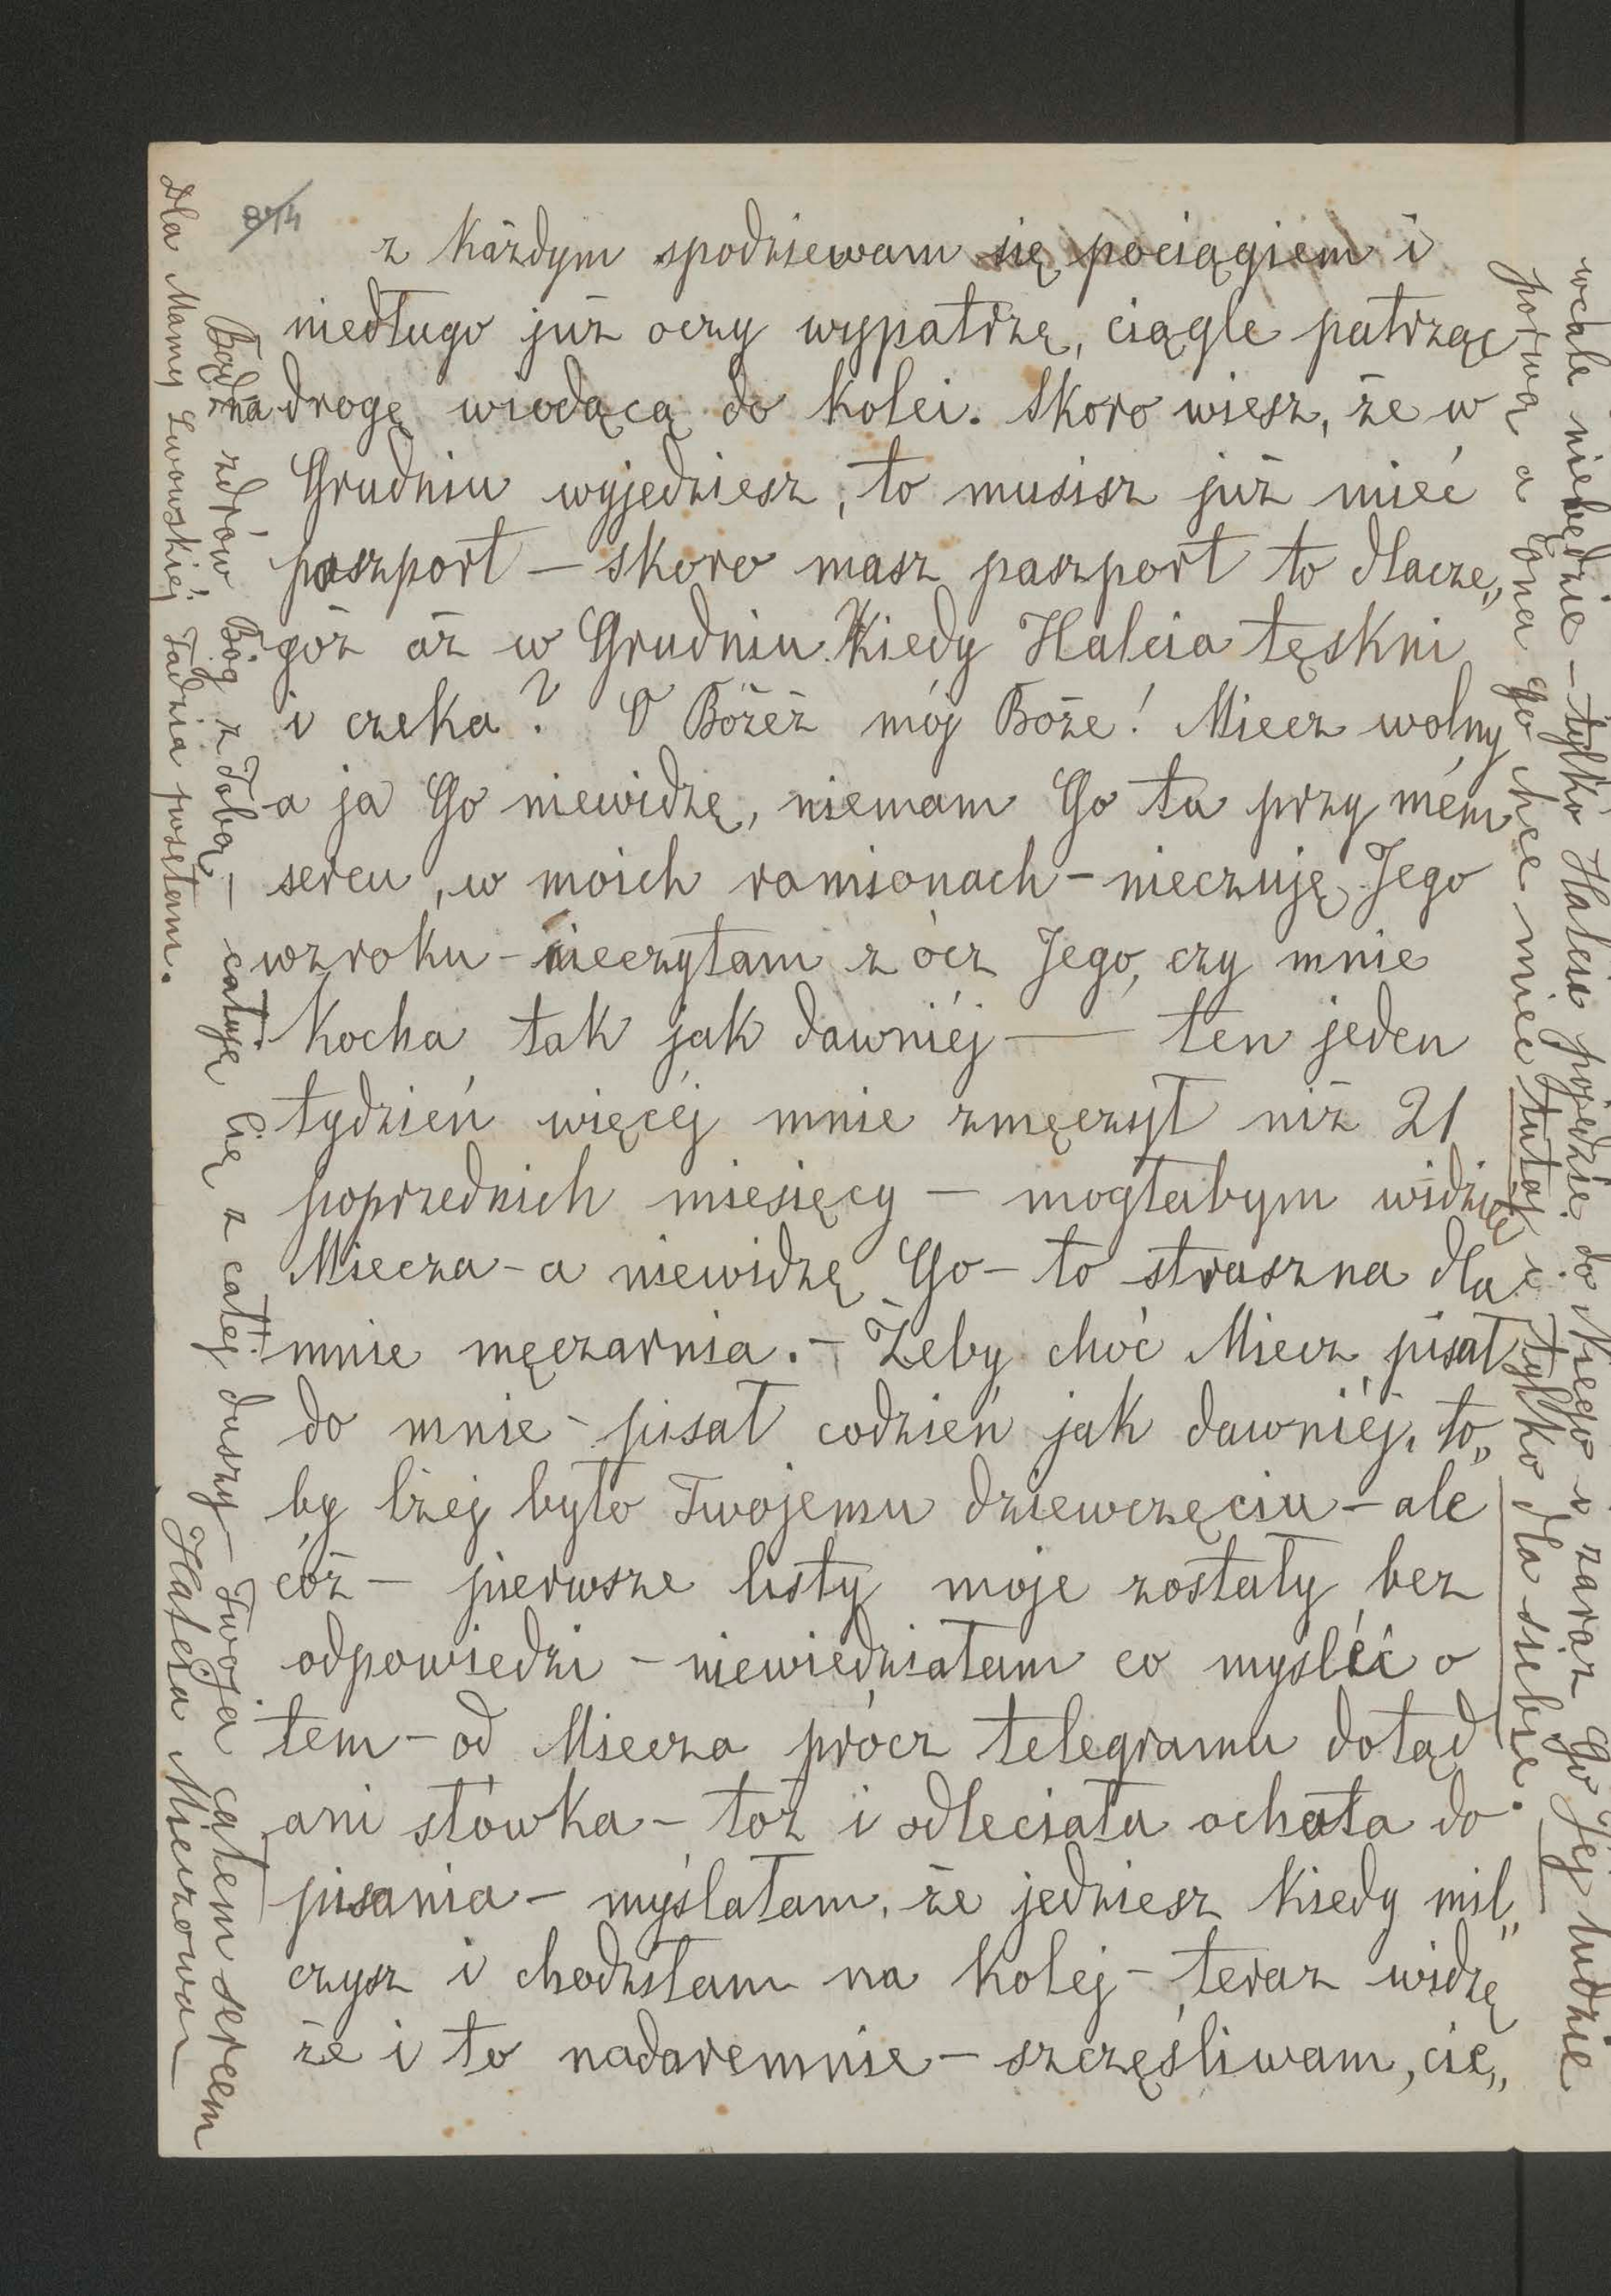 z każdym spodziewam się pociągiem i
niedługo już oczy wypatrzę, ciągle patrząc
na drogę wiodącą do kolei. Skoro wiesz, że w
Grudniu wyjedziesz, to musisz już mieć
paszport – skoro masz paszport to dlacze„
góż aż w Grudniu. Kiedy Halcia tęskni
i czeka? O Bożeż mój Boże! Miecz wolny
a ja Go niewidzę, niemam Go tu przy mém
sercu, w moich ramionach – nieczuję Jego
wzroku – nieczytam z ócz Jego, czy mnie
kocha tak jak dawniéj — ten jeden
tydzień więcéj mnie zmęczył niż 21
poprzednich miesięcy – mogłabym widzieć
Miecza – a niewidzę Go – to straszna dla
mnie męczarnia. – Żeby choć Miecz pisał
do mnie – pisał codzień jak dawniéj, to„
by lżej było Twojemu dziewczęciu – ale
cóż – pierwsze listy moje zostały bez
odpowiedzi – niewiedziałam co myśléć o
tem – od Miecza prócz telegramu dotąd
ani słówka – toż i odleciała ochota do
pisania – myślałam, że jedziesz kiedy mil„
czysz i chodziłam na kolej – teraz widzę
że i to nadaremnie – szczęśliwam, cie„
wcale niebędzie – tylko Halcia pojedzie do Niego i zaraz Go Jéj ludzie
porwą a Ona go chce mieć tutaj i tylko dla siebie.
Bądź zdrów Bóg z Tobą – całuję Cię z całéj duszy – Twoja całem sercem
Halcia Mieczowa –
Dla Mamy Lwowskiéj Tadzia posełam.